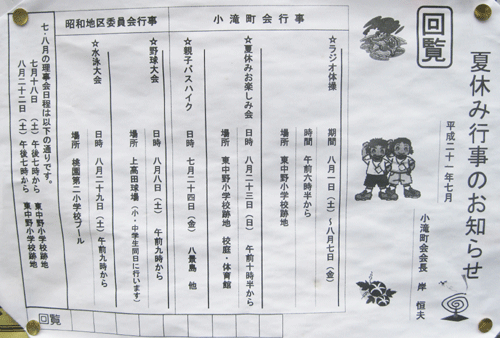 回覧
夏休み行事のお知らせ
平成二十一年七月
小滝町会会長 岸 恒夫
小滝町会行事
☆ラジオ体操
期間 八月一日(土)~八月七日(金)
時間 午前六時半から
場所 東中野小学校跡地
☆夏休みお楽しみ会
日時 八月二十三日(日)午前十時半から
場所 東中野小学校跡地 校庭・体育館
☆親子バスハイク
日時 七月二十四日(金) 八景島 他
昭和地区委員会行事
☆野球大会
日時 八月八日(土) 午前九時から
場所 上高田球場(小・中学生同日に行います)
☆水泳大会
日時 八月二十九日(土)午前九時から
場所 桃園第二小学校プール
七・八月の理事会日程は以下の通りです。
七月十八日(土)午後七時から 東中野小学校跡地
八月二十二日(土)午後七時から 東中野小学校跡地
回覧